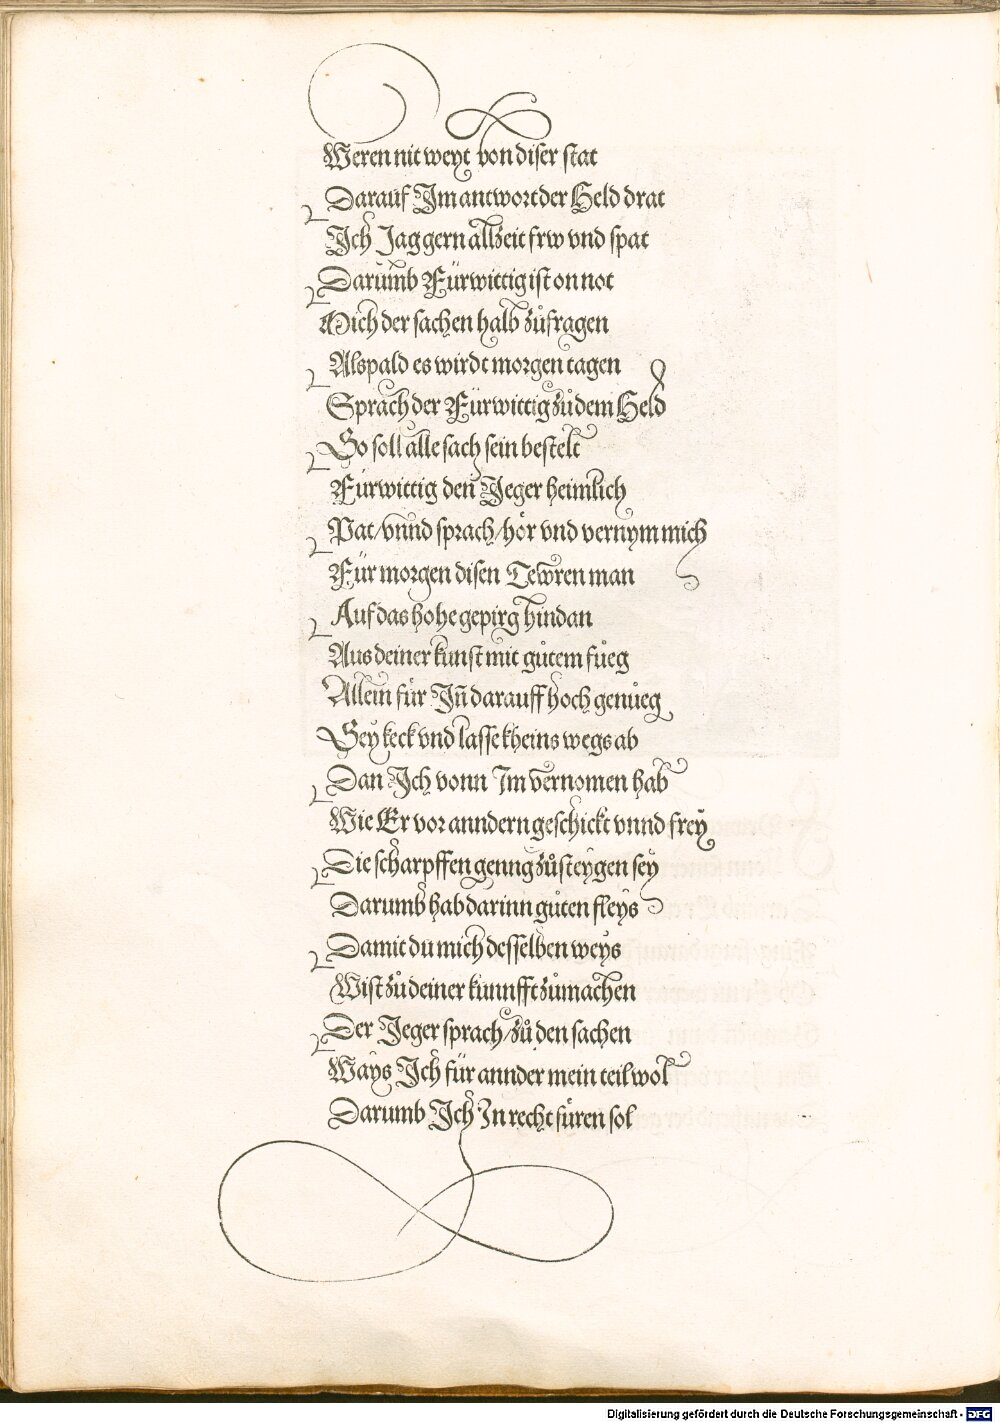 Weren nit weyt von diser stat
Darauf Im antwort der Held drat
Ich Jag gern allzeit frw vnd spat
Darumb Fürwittig ist on not
Mich der sachen halb zůfragen
Alspald es wirdt morgen tagen
Sprach der Fürwittig zů dem Held
So soll alle sach sein bestelt
Fürwittig den Jeger heimlich
Pat/vnnd sprach/hör vnd vernym mich
Für morgen disen Tewren man
Auf das hohe gepirg hindan
Aus deiner kunst mit gůtem fůeg
Allein für In̄ darauff hoch genůeg
Sey keck vnd lasse kheins wegs ab
Dan Ich vonn Im vernomen hab
Wie Er vor anndern geschickt vnnd frey
Die scharpffen genng zůsteygen sey
Darumb hab darinn gůten fleys
Damit du mich desselben weys
Wist zů deiner kunnfft zůmachen
Der Jeger sprach/zů den sachen
Ways Ich für annder mein teil wol
Darumb Ich In recht füren sol
Digitalisierung gefördert durch die Deutsche Forschungsgemeinschaft - DFG